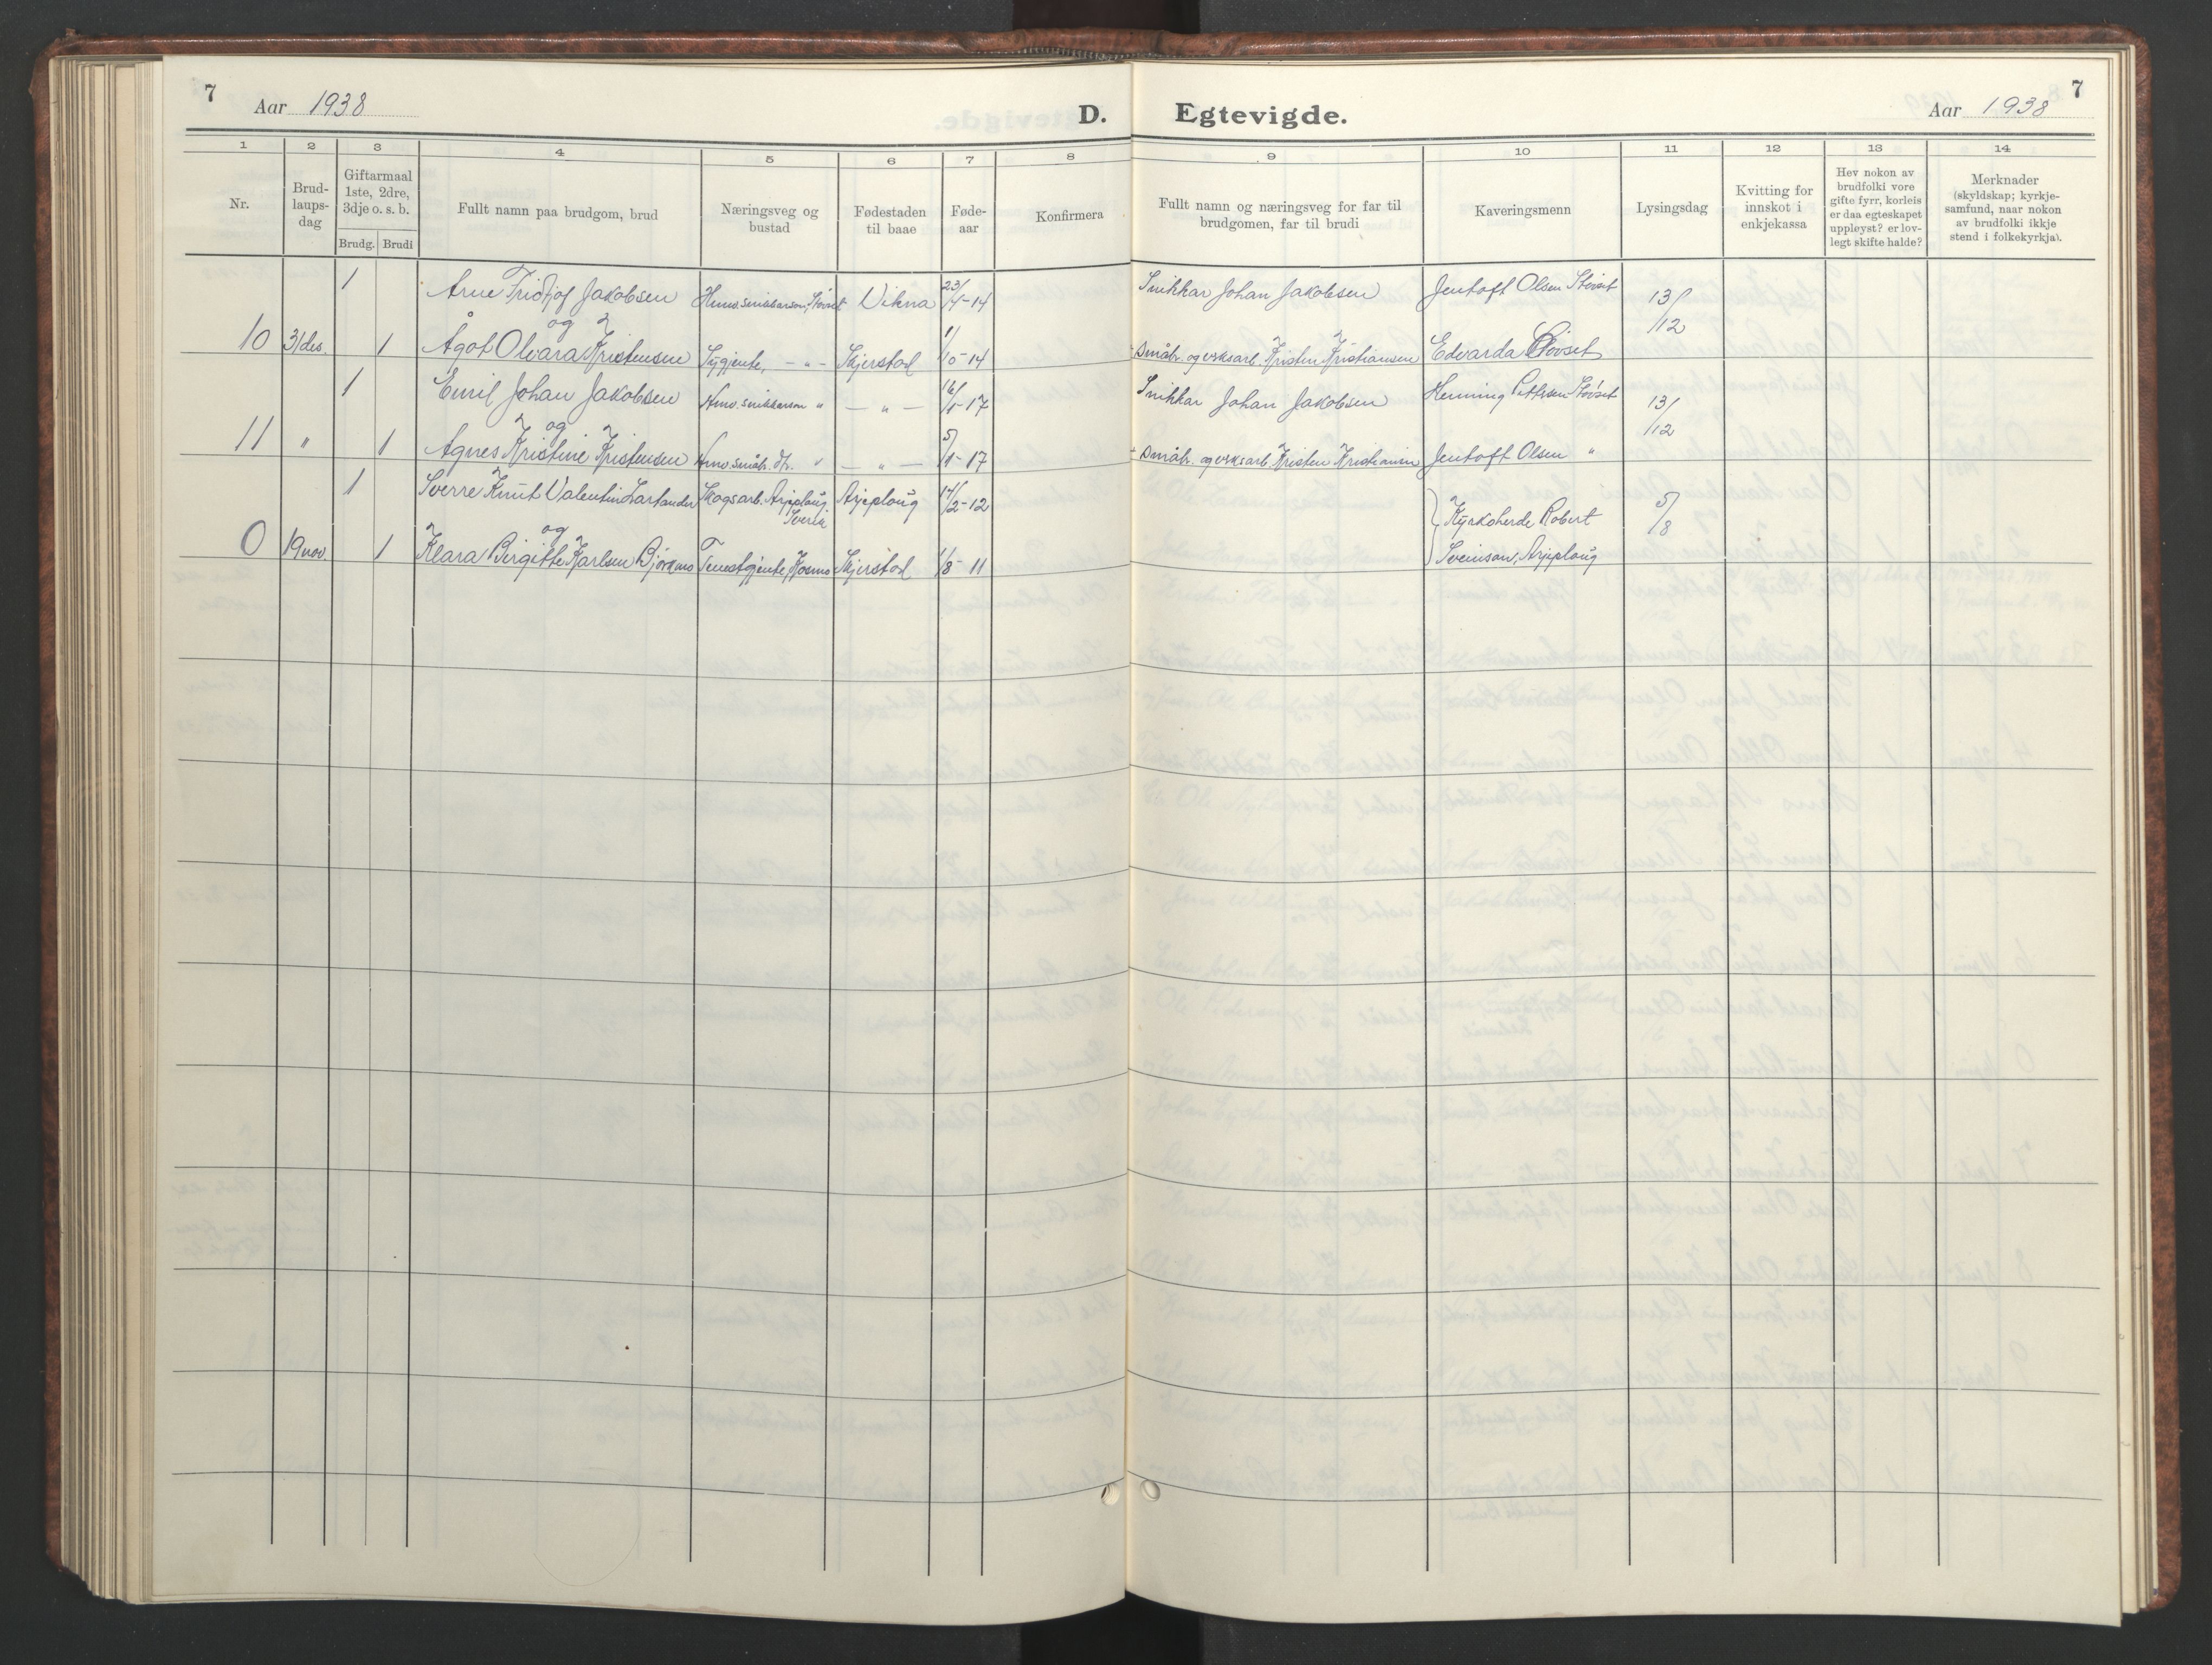 7
Aar 1938
D. Egtevigde.
Aar 1938
7
1 2 3 4 5 6 7 8 9 10 11 12 13 14
Nr.
Brud-
laups-
dag
Giftarmaal
1ste, 2dre,
3dje o. s. b.
Brudg. Brudi
Fullt namn paa brudgom, brud
Næringsveg og
bustad
Fødestaden
til baae
Føde-
aar
Konfirmera
Fullt namn og næringsveg for far til
brudgomen, far til brudi
Kaveringsmenn
Lysingsdag
Kvitting for
innskot i
enkjekassa
Hev nokon av
brudfolki vore
gifte fyrr, korleis
er daa egteskapet
uppløyst? er lov-
legt skifte halde?
Merknader
(skyldskap; kyrkje-
samfund, naar nokon
av brudfolki ikkje
stend i folkekyrkja).
1 Arne Fridtjof Jakobsen Vikna 23/4-14 Snikkar Johan Jakobsen Jentoft Olsen Støvset 13/12
og
10 31/des. 1 Ågot Olvara Kristensen Sygjente, - " - Skjerstad 1/10-14 småbr. og vrksarb. Kristen Kristiansen Edvarda Støvset
1 Emil Johan Jakobsen Hmv. snikkarson " - " - 16/1-17 Snikkar Johan Jakobsen Henning Pettersen Støvset 13/12
og
11 " 1 Agnes Kristine Kristensen Hmv. småbr. dtr. " - " - 5/1-17 småbr. og vrksarb. Kristen Kristiansen Jentoft Olsen "
1 Sverre Knut Valentin Skogsarb. Arjeploug Arjeploug 14/2-12 Kyrkoherde Robert 5/8
Sveria
og
0 19 nov. 1 Klara Birgitte Karlsen Bjørkmo Tenestgjente, Kosmo Skjerstad 1/8-11 Svensson, Arjeploug